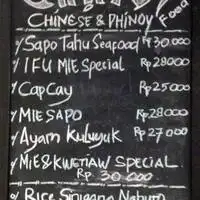 CHINESE & PHINOY Food
Sapo Tahu Seafood Rp 30.000
I FU MIE Special Rp 28000
CapCay Rp 25000
MIE SAPO Rp 28000
Ayam Kuluyuk Rp 27000
MIE & KWETIAW SPECIAL
Rp 30 000
Rice Sinigang